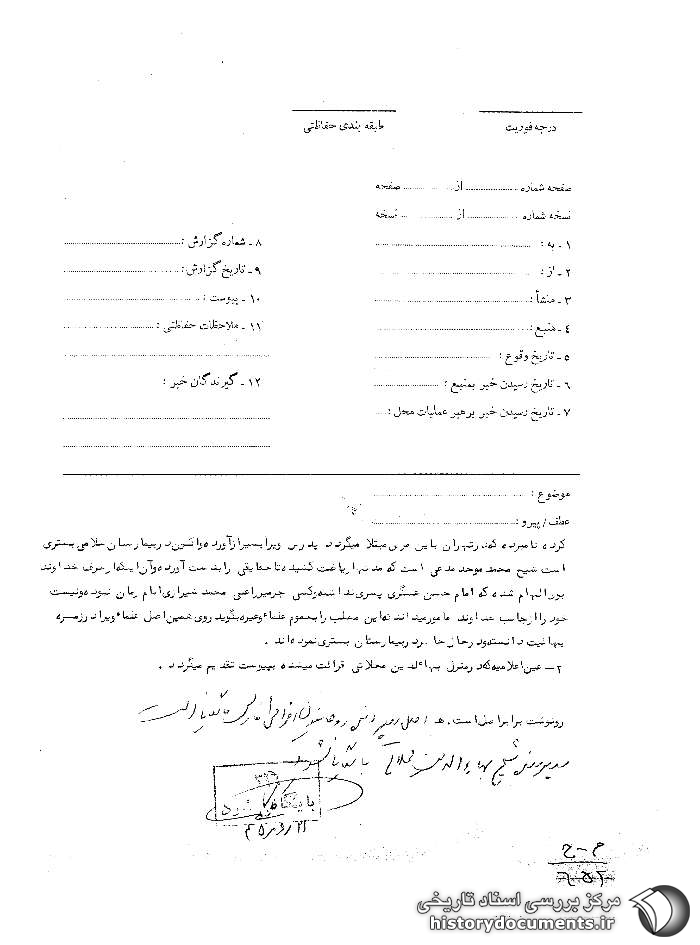 درجه فوریت
طبقه بندی حفاظتی
صفحه شماره از صفحه
نسخه شماره از نسخه
۱ ـ به :
۲ ـ از :
۳ ـ منشأ :
۴ ـ منبع :
۵ ـ تاریخ وقوع :
۶ ـ تاریخ رسیدن خبر بمنبع :
۷ ـ تاریخ رسیدن خبر برهبر عملیات محل :
۸ ـ شماره گزارش :
۹ ـ تاریخ گزارش :
۱۰ ـ پیوست :
۱۱ ـ ملاحظات حفاظتی :
۱۲ ـ گیرندگان خبر :
موضوع :
عطف / پیرو :
کرده نامبرده که در تهران باین مرض مبتلا میگردد پدرش ویرا بسبزار آورده واکنون در بیمارستان حلامی بستری
است شیخ محمد موحد مدعی است که مدتها ریاضت کشیده تا حقایقی را بدست آورده و آن اینکه از طرف خداوند
بور الهام شده که امام حسن عسگری پسری نداشته وکسی جز میرزا علی محمد شیرازی امام زمان نبوده و نیست
خود را از جانب خداوند مامور میداند که این مطلب را بعموم علما وغیره بگوید روی همین اصل علما ویرا در زمره
بهائیت دانسته و در حال حاضر در بیمارستان بستری نموده اند .
۲ ـ عین اعلامیه که در منزل بهاءالدین محلاتی قرائت میشده بپیوست تقدیم میگردد .
رونوشت برابر اصل است . هـ اصل در پرونده
در پرونده شیخ بهاءالدین محلاتی بایگانی شود
بایگانی شود
م - ج
مرکز بررسی اسناد تاریخی
historydocuments.ir